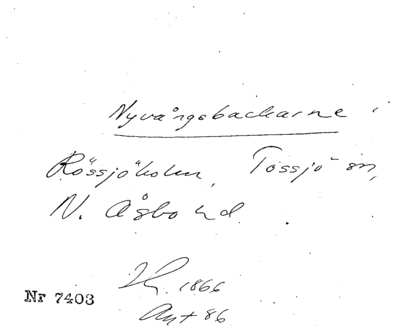 Nyvångsbackarne i
Rössjöholm, Tossjö sn,
N. Åsbo hd.
1866
Nr 7403
Ant 86